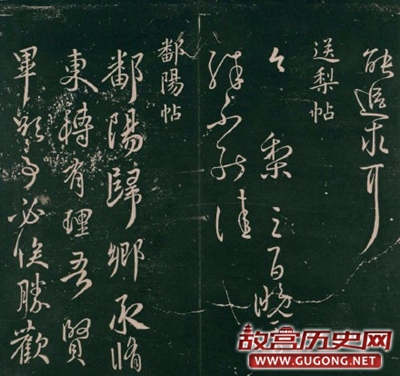 能追求可
送梨帖
今梨三百晚
殊不能佳
鄱陽帖
鄱陽歸鄉承脩
東轉有理吾賢
畢欲事必俟勝歡
故宫历史网
WWW.GUGONG.NET